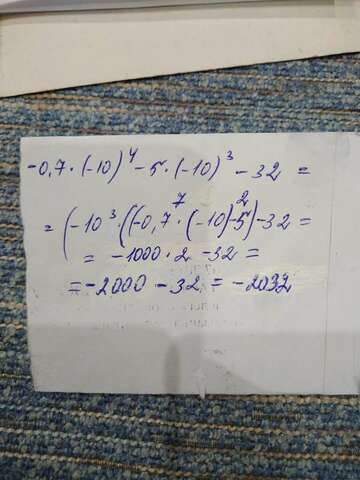 -0,7·(-10)⁴-5·(-10)³-32 =
7 2
= (-10³·((-0,7·(-10)-5)-32 =
= -1000·2-32 =
= -2000-32 = -2032